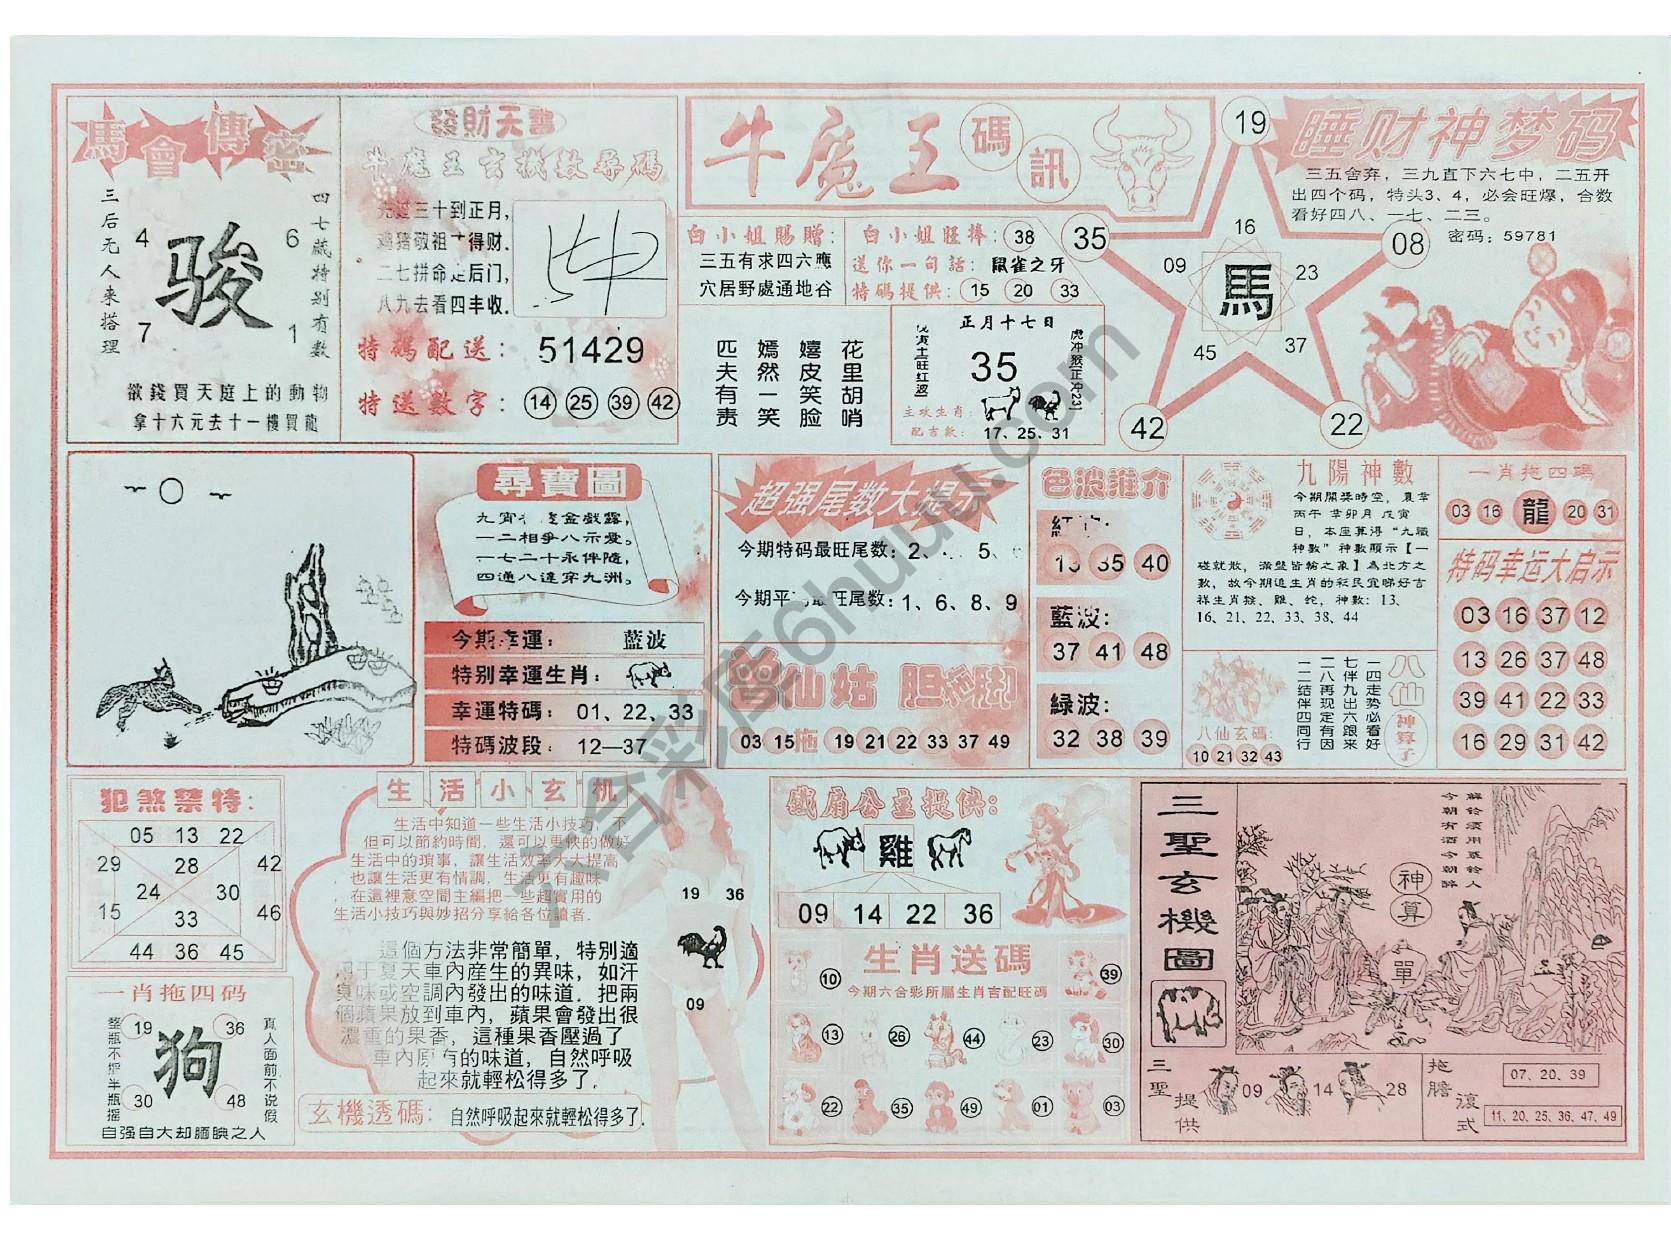 馬會傳密
三后无人来搭理
四七藏特别有数
4
6
骏
7
1
欲錢買天庭上的動物
拿十六元去十一樓買龍
發財天書
牛魔王玄機數尋碼
三十到正月,
鸡猪敬祖十得财.
二七拼命走后门,
八九去看四丰收.
特碼配送:51429
特送數字:14 25 39 42
牛魔王碼訊
白小姐賜贈:
三五有求四六應
穴居野處通地谷
白小姐旺捧:38
送你一句話:鼠雀之牙
特碼提供:15 20 33
花里胡哨
嬉皮笑脸
嫣然一笑
匹夫有责
正月十七日
35
虎冲猴正冲23
主攻生肖:
配吉數:17、25、31
19
35
08
42
22
16
09
23
馬
45
37
睡财神梦码
三五舍弃，三九直下六七中，二五开
出四个码，特头3、4，必会旺爆，合数
看好四八、一七、二三。
密码：59781
尋寶圖
金戲露,
一二相爭八示愛。
一七二十永伴隨,
四通八達穿九洲。
今期幸運:藍波
特别幸運生肖:
幸運特碼:01、22、33
特碼波段:12—37
超强尾数大提示
今期特码最旺尾数:2、 5、
今期平 最旺尾数:1、6、8、9
仙姑 胆拖脚
03 15 拖 19 21 22 33 37 49
色波推介
紅波:
13 35 40
藍波:
37 41 48
綠波:
32 38 39
九陽神數
今期開獎時空，農曆
丙午 辛卯月 戊寅
日，本座算得“九職
神數”神數顯示【一
碰就散，滿盤皆輸之象】為北方之
數，故今期追生肖的彩民宜睇好吉
祥生肖猴、雞、蛇，神數：13、
16、21、22、33、38、44
八仙神算子
一四走势必看好
七伴九出六跟来
二八再现定有因
一二结伴四同行
八仙玄碼:
10 21 32 43
一肖拖四碼
03 16 龍 20 31
特码幸运大启示
03 16 37 12
13 26 37 48
39 41 22 33
16 29 31 42
犯煞禁特:
05 13 22
29 28 42
24 30
15 33 46
44 36 45
一肖拖四码
整瓶不把半瓶摇
真人面前不说假
19 36
狗
30 48
自强自大却腼腆之人
生活小玄机
生活中知道一些生活小技巧，不
但可以節約時間，還可以更快的做好
生活中的瑣事，讓生活效率大大提高
也讓生活更有情調，生活更有趣味
，在這裡意空間主編把一些超實用的
生活小技巧與妙招分享給各位讀者.
這個方法非常簡單，特別適
用于夏天車內產生的異味，如汗
臭味或空調內發出的味道．把兩
個蘋果放到車內，蘋果會發出很
濃重的果香，這種果香壓過了
車內原有的味道，自然呼吸
起來就輕松得多了．
玄機透碼:自然呼吸起來就輕松得多了.
19 36
09
鐵扇公主提供:
雞
09 14 22 36
生肖送碼
今期六合彩所屬生肖吉配旺碼
10
39
13 26 44 23 30
22 35 49 01 03
三聖玄機圖
解铃须用系铃人
今朝有酒今朝醉
神算
單
三聖提供
09 14 28
拖膽滾式
07、20、39
11、20、25、36、47、49
六合彩库6huuu.com